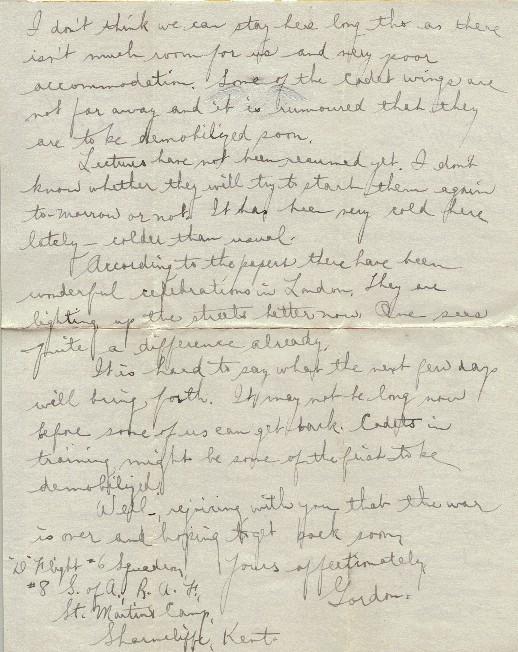 I don't think we can stay here long tho as there
isn't much room for us and very poor
accommodation. Some of the Cadet wings are
not far away and it is rumoured that they
are to be demobilized soon.
Lectures have not been resumed yet. I don't
know whether they will try to start them again
to-morrow or not. It has been very cold here
lately - colder than usual.
According to the papers there have been
wonderful celebrations in London. They are
lighting up the streets better now. One sees
quite a difference already.
It is hard to say what the next few days
will bring forth. It may not be long now
before some of us can get back. Cadets in
training might be some of the first to be
demobilized.
Well - rejoicing with you that the war
is over and hoping to get back soon,
Yours affectionately,
Gordon.
"D" Flight #6 Squadron,
#8 S. of A., R. A. F.,
St. Martins Camp,
Shorncliffe, Kent.